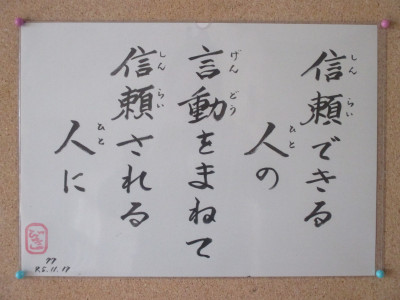 信頼できる
人の
言動をまねて
信頼される
人に
しんらい
ひと
げんどう
しんらい
ひと
77
R.5.11.17